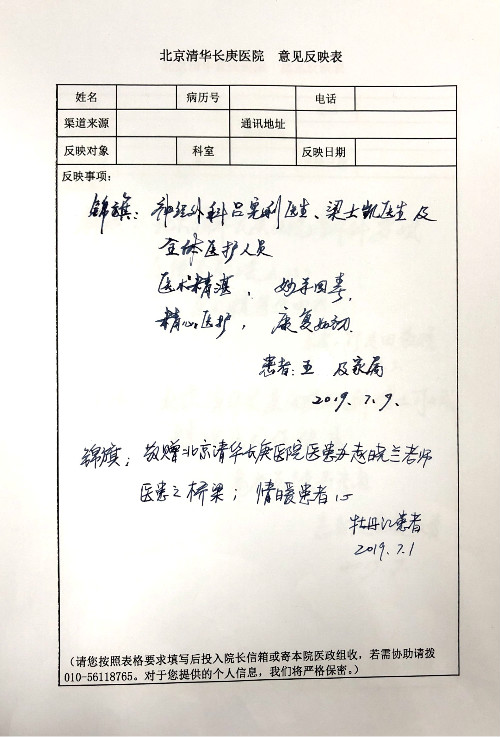 北京清华长庚医院 意见反映表
姓名 病历号 电话
渠道来源 通讯地址
反映对象 科室 反映日期
反映事项：
锦旗：神经外科吕宪利医生、梁士凯医生及
全体医护人员
医术精湛，妙手回春，
精心医护，康复如初.
患者：王 及家属
2019.7.9.
锦旗：敬赠北京清华长庚医院医患办赵晓兰老师
医患之桥梁；情暖患者心
牡丹江患者
2019.7.1
（请您按照表格要求填写后投入院长信箱或寄本院医政组收，若需协助请拨
010-56118765。对于您提供的个人信息，我们将严格保密。）